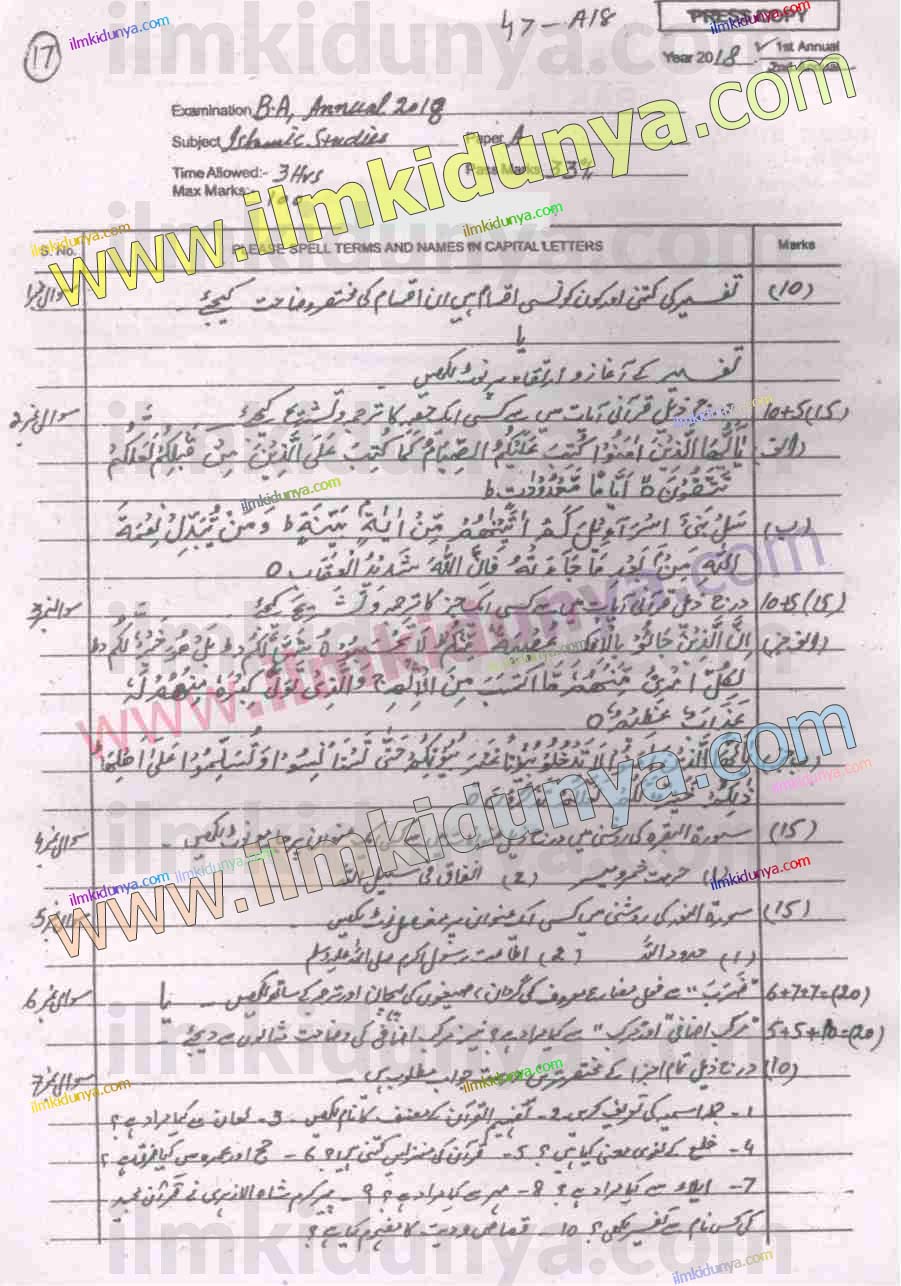 47-A18
PRESS COPY
17
Year 2018 ✓ 1st Annual
2nd Annual
Examination B.A, Annual 2018
Subject Islamic Studies Paper A
Time Allowed:- 3 Hrs Pass Marks 33%
Max Marks:- 100
S. No. PLEASE SPELL TERMS AND NAMES IN CAPITAL LETTERS Marks
سوال نمبر1 تفسیر کی کتنی اور کون کونسی اقسام ہیں ان اقسام کی مختصر وضاحت کیجئے۔ (10)
یا
تفسیر کے آغاز و ارتقاء پر نوٹ لکھیں
سوال نمبر2 درج ذیل قرآنی آیات میں سے کسی ایک جز کا ترجمہ و تشریح کیجئے۔ 10+5(15)
(الف) یٰۤاَیُّهَا الَّذِیْنَ اٰمَنُوْا كُتِبَ عَلَیْكُمُ الصِّیَامُ كَمَا كُتِبَ عَلَى الَّذِیْنَ مِنْ قَبْلِكُمْ لَعَلَّكُمْ
تَتَّقُوْنَ ○ اَیَّامًا مَّعْدُوْدٰتٍ ط
(ب) سَلْ بَنِیْۤ اِسْرَآءِیْلَ كَمْ اٰتَیْنٰهُمْ مِّنْ اٰیَةٍ بَیِّنَةٍ ط وَ مَنْ یُّبَدِّلْ نِعْمَةَ
اللّٰهِ مِنْۢ بَعْدِ مَا جَآءَتْهُ فَاِنَّ اللّٰهَ شَدِیْدُ الْعِقَابِ ○
سوال نمبر3 درج ذیل قرآنی آیات میں سے کسی ایک جز کا ترجمہ و تشریح کیجئے۔ 10+5(15)
اِنَّ الَّذِیْنَ جَآءُوْ بِالْاِفْكِ عُصْبَةٌ مِّنْكُمْ لَا تَحْسَبُوْهُ شَرًّا لَّكُمْ ط بَلْ هُوَ خَیْرٌ لَّكُمْ ط
لِكُلِّ امْرِئٍ مِّنْهُمْ مَّا اكْتَسَبَ مِنَ الْاِثْمِ ج وَ الَّذِیْ تَوَلّٰى كِبْرَهٗ مِنْهُمْ لَهٗ
عَذَابٌ عَظِیْمٌ ○
یٰۤاَیُّهَا الَّذِیْنَ اٰمَنُوْا لَا تَدْخُلُوْا بُیُوْتًا غَیْرَ بُیُوْتِكُمْ حَتّٰى تَسْتَاْنِسُوْا وَ تُسَلِّمُوْا عَلٰۤى اَهْلِهَا
ذٰلِكُمْ خَیْرٌ لَّكُمْ لَعَلَّكُمْ تَذَكَّرُوْنَ ○
سوال نمبر4 سورۃ البقرہ کی روشنی میں درج ذیل میں سے کسی ایک پر نوٹ لکھیں۔ (15)
(1) حرمت خمر و میسر (2) انفاق فی سبیل اللہ
سوال نمبر5 سورۃ النور کی روشنی میں کسی ایک عنوان پر مفصل نوٹ لکھیں۔ (15)
(1) حدود اللہ (2) اطاعت رسول اکرم صلی اللہ علیہ وسلم
سوال نمبر6 "ضرب" سے فعل مضارع معروف کی گردان، صیغوں کی پہچان اور ترجمہ کے ساتھ لکھیں۔ یا 6+7+7=(20)
"مرکب اضافی" اور "مرکب" سے کیا مراد ہے؟ نیز مرکب اضافی کی وضاحت مثالوں سے دیجئے۔ 5+5+10=(20)
سوال نمبر7 درج ذیل تمام اجزاء کے مختصر ترین جواب مطلوب ہیں۔ (10)
1- جملہ اسمیہ کی تعریف کریں۔ 2- تفہیم القرآن کے مصنف کا نام لکھیں۔ 3- لعان سے کیا مراد ہے؟
4- خلع کے لغوی معنی کیا ہیں؟ 5- قرآن کی منزلیں کتنی ہیں؟ 6- حج اور عمرہ میں کیا فرق ہے؟
7- ایلاء سے کیا مراد ہے؟ 8- مہر سے کیا مراد ہے؟ 9- پیر کرم شاہ الازہری نے قرآن مجید
کی کس نام سے تفسیر لکھی؟ 10- قصاص و دیت کا مفہوم کیا ہے؟
www.ilmkidunya.com
ilmkidunya.com